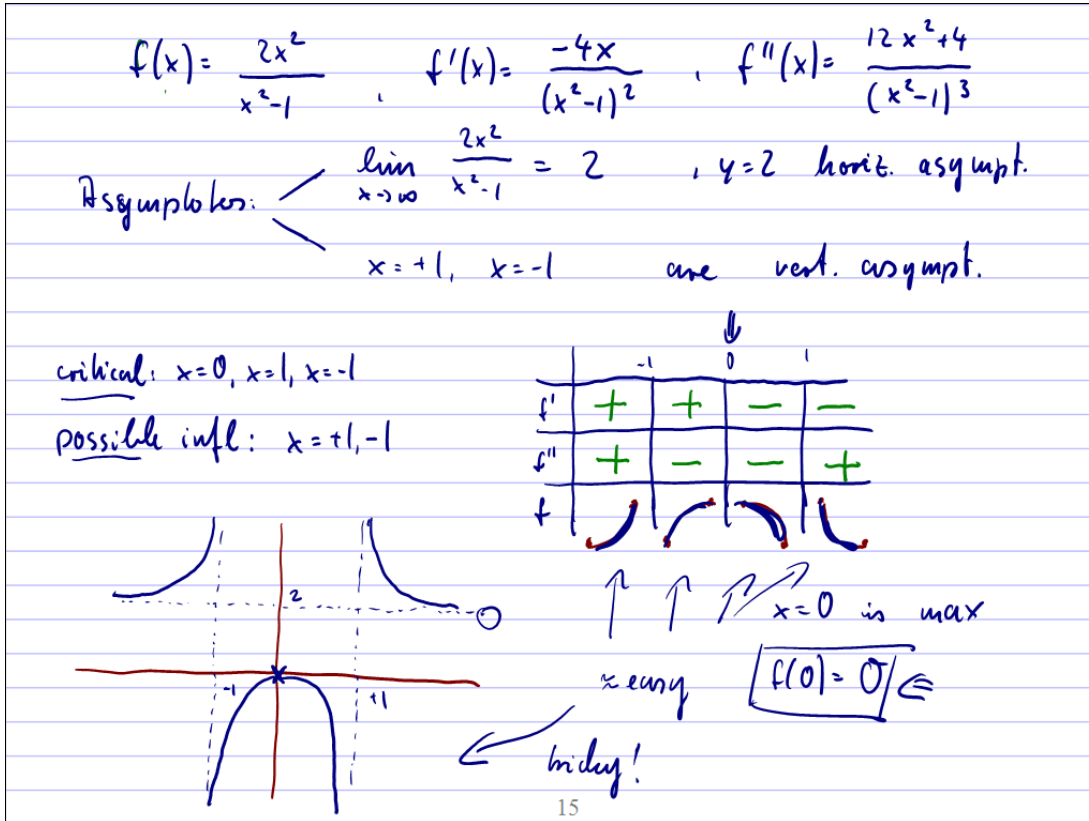 f(x) = 2x²/(x²-1) , f'(x) = -4x/(x²-1)² , f''(x) = (12x²+4)/(x²-1)³
Asymptotes: lim x→∞ 2x²/(x²-1) = 2 , y=2 horiz. asympt.
x=+1, x=-1 are vert. asympt.
critical: x=0, x=1, x=-1
possible infl: x=+1,-1
-1 0 1
f' + + - -
f'' + - - +
f
2
-1 +1
x=0 is max
≈easy f(0)=0
tricky!
15